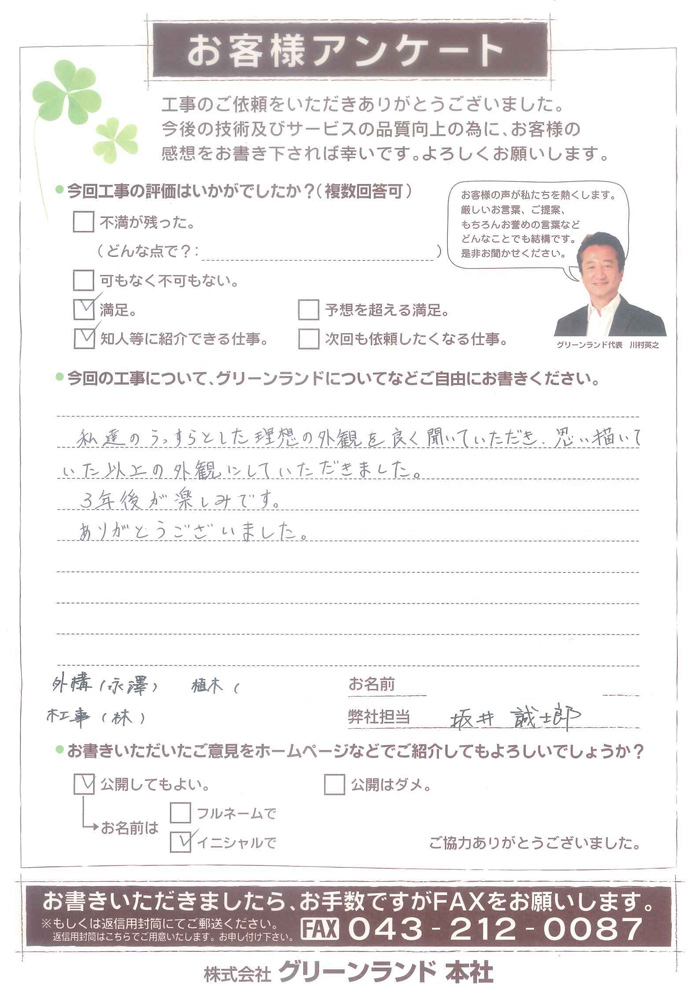 お客様アンケート
工事のご依頼をいただきありがとうございました。
今後の技術及びサービスの品質向上の為に、お客様の
感想をお書き下されば幸いです。よろしくお願いします。
●今回工事の評価はいかがでしたか？（複数回答可）
不満が残った。
（どんな点で？：　　　　）
可もなく不可もない。
満足。
予想を超える満足。
知人等に紹介できる仕事。
次回も依頼したくなる仕事。
お客様の声が私たちを熱くします。
厳しいお言葉、ご提案、
もちろんお誉めの言葉など
どんなことでも結構です。
是非お聞かせください。
グリーンランド代表　川村英之
●今回の工事について、グリーンランドについてなどご自由にお書きください。
私達のうっすらとした理想の外観を良く聞いていただき、思い描いて
いた以上の外観にしていただきました。
3年後が楽しみです。
ありがとうございました。
外構（永澤）　植木（
木工事（林）
お名前
弊社担当　坂井 誠士郎
●お書きいただいたご意見をホームページなどでご紹介してもよろしいでしょうか？
公開してもよい。
公開はダメ。
お名前は
フルネームで
イニシャルで
ご協力ありがとうございました。
お書きいただきましたら、お手数ですがFAXをお願いします。
※もしくは返信用封筒にてご郵送ください。
返信用封筒はこちらでご用意いたします。お申し付け下さい。
FAX 043-212-0087
株式会社 グリーンランド 本社